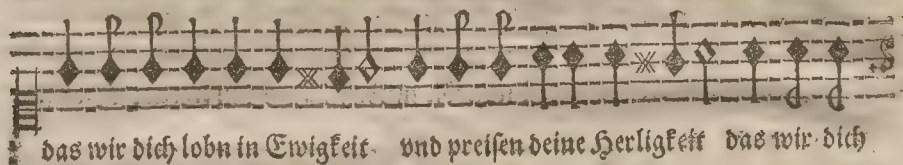 das wir dich lobn in Ewigkeit vnd preisen deine Herligkeit das wir dich